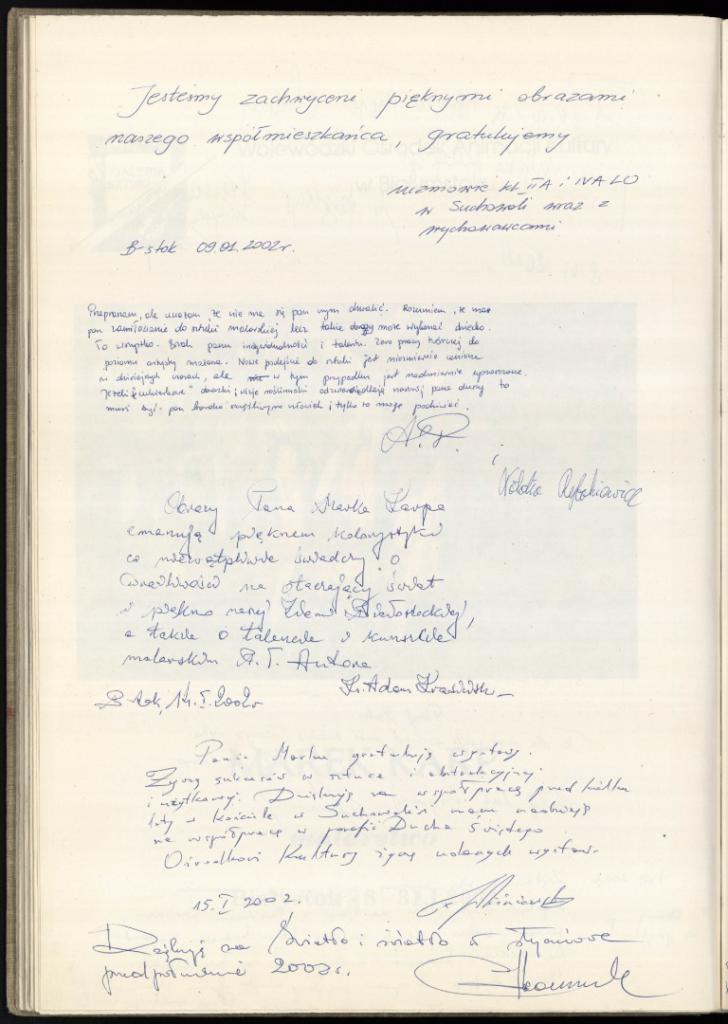 Jesteśmy zachwyceni pięknymi obrazami
naszego współmieszkańca, gratulujemy
uczniowie kl. IIA i IVA LO
w Suchowoli wraz z
wychowawcami
B-stok 09.01.2002r.
Przepraszam, ale uważam, że nie ma się pan czym chwalić. Rozumiem, że ma
pan zamiłowanie do sztuki malarskiej lecz takie może wykonać dziecko.
To wszystko. Brak panu indywidualności i talentu.
poziomu artysty malarza. Nowe podejście do sztuki jest niezmiernie cenione
w dzisiejszych czasach, ale w tym przypadku jest nadmiernie uproszczone.
Jeżeli te obrazki, wizje roślinności odzwierciedlają nastrój pana duszy to
musi być pan bardzo człowiek i tylko to mogę podziwiać.
A.R.
Obrazy Pana Marka Karpa
emanują pięknem kolorystyki
co niewątpliwie świadczy o
wrażliwości na otaczający świat
i piękno naszej Ziemi Białostockiej,
a także o talencie i kunszcie
malarskim A.T. Autora
B-stok, 14.I.2002r
Ks. Adam
Panie Marku gratuluję wystawy.
Życzę sukcesów w sztuce i
i użytkowej. Dziękuję za współpracę przed kilku
laty w kościele w Suchowoli mam nadzieję
na współpracę w parafii Ducha Świętego
Ośrodkowi Kultury życzę udanych wystaw.
15.I 2002r.
Dziękuję za Światło i światło w styczniowe
przedpołudnie 2002r.